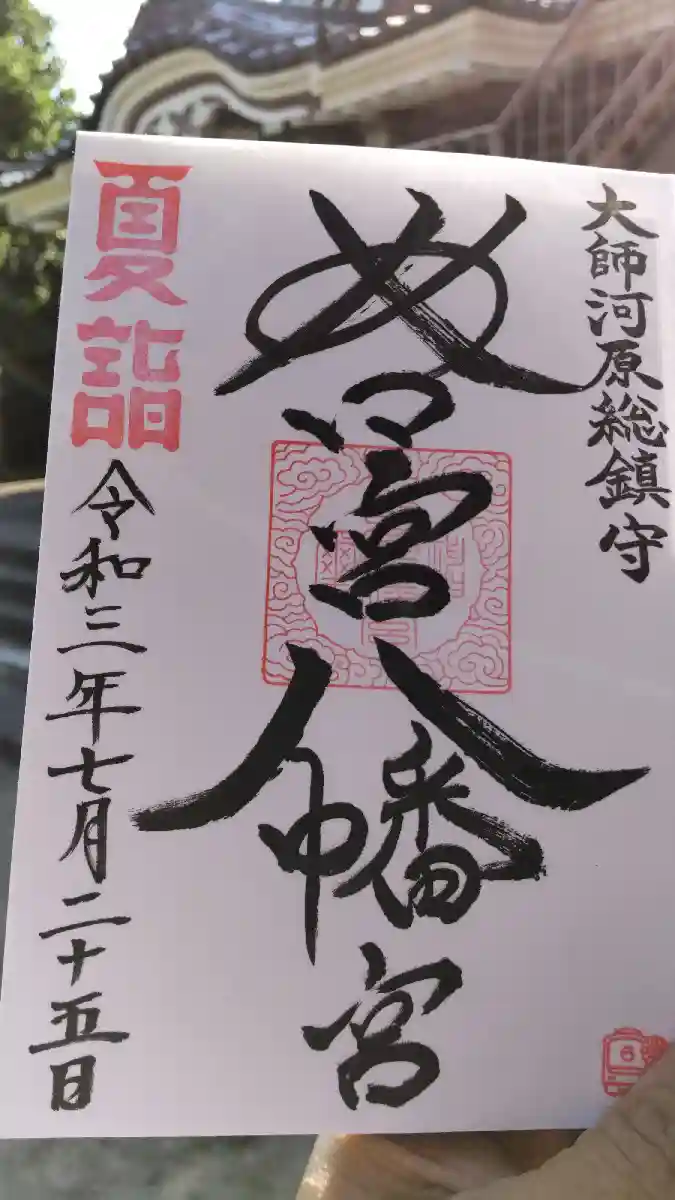 大師河原総鎮守
若宮八幡宮
夏詣
令和三年七月二十五日
6